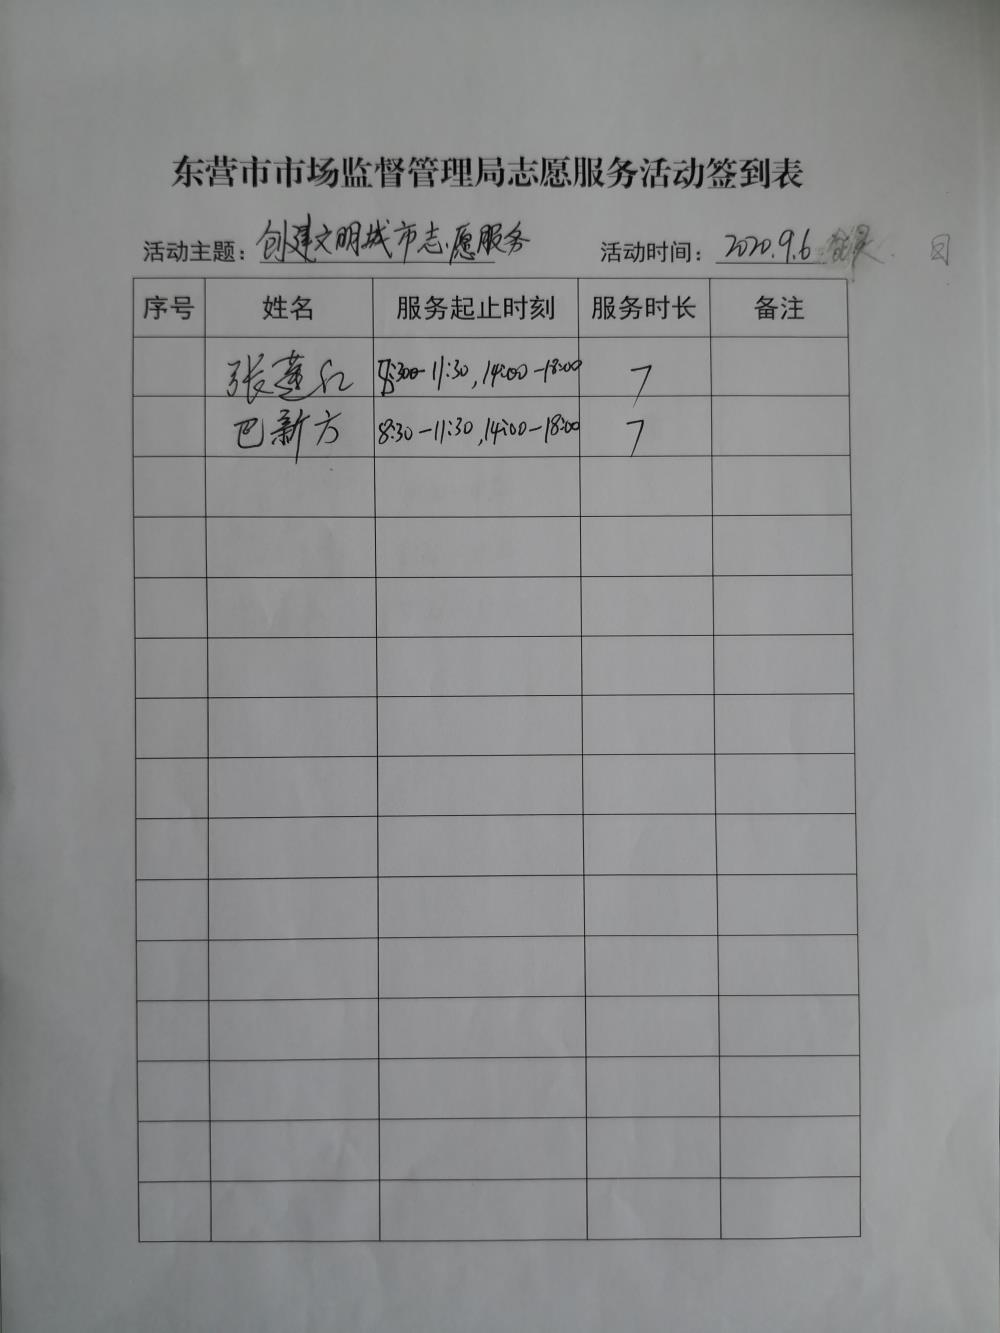 东营市市场监督管理局志愿服务活动签到表
活动主题：创建文明城市志愿服务 活动时间：2020.9.6
序号 姓名 服务起止时刻 服务时长 备注
张莲 8:30-11:30,14:00-18:00 7
巴新方 8:30-11:30,14:00-18:00 7